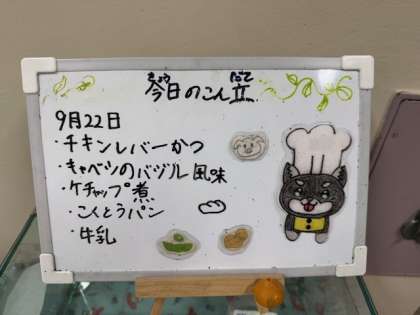 今日のこん立
きょう だて
9月22日
・チキンレバーかつ
・キャベツのバジル風味
・ケチャップ煮
・こくとうパン
・牛乳